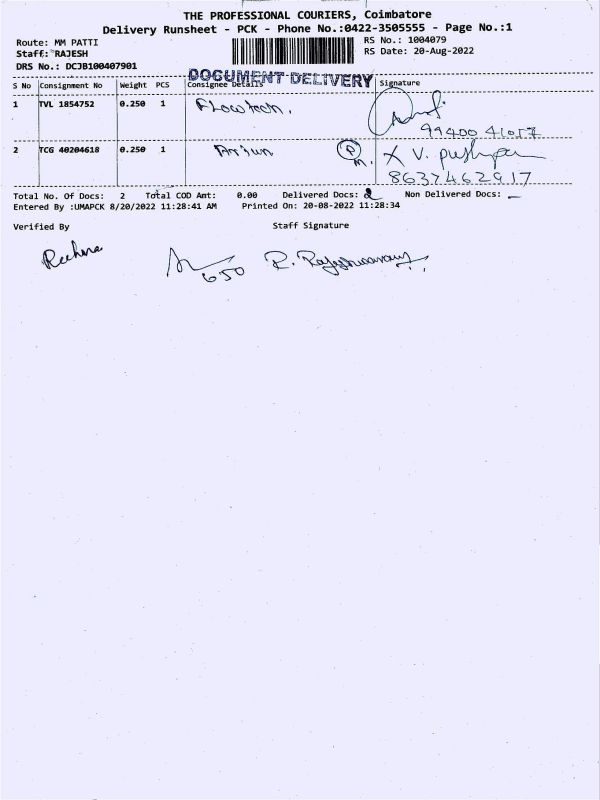 THE PROFESSIONAL COURIERS, Coimbatore
Delivery Runsheet - PCK - Phone No.:0422-3505555 - Page No.:1
Route: MM PATTI RS No.: 1004079
Staff: RAJESH RS Date: 20-Aug-2022
DRS No.: DCJB100407901
DOCUMENT DELIVERY
S No Consignment No Weight PCS Consignee Details Signature
1 TVL 1854752 0.250 1 Flowtech.
99400 41017
2 TCG 40204618 0.250 1 Arjun P M. X V. pushpa
8637462917
Total No. Of Docs: 2 Total COD Amt: 0.00 Delivered Docs: 2 Non Delivered Docs: —
Entered By :UMAPCK 8/20/2022 11:28:41 AM Printed On: 20-08-2022 11:28:34
Verified By Staff Signature
650 R. Rajeshwaran